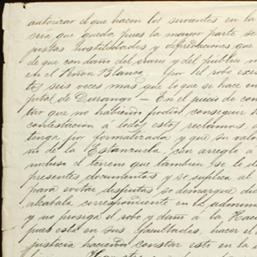 autorizar el que hacen los sirvientes en la
seria que queda pues la mayor parte se
puestas hostilidades y
de que con daño del claro y del publico
en el Peñon Blanco. Por del robo
tos seis veces mas que lo que se hace en
pital de Durango — En el precio de con
tivo que no habiendo podido conseguir
contestacion a todos estos reclamos
tenga por formalizada y que en
n de la Estanzuela con arreglo a
incluso el terreno que tambien se le
presentes documentos y se suplica al
para evitar disputas se demarque
alcabala correspondiente en la
y no prosiga el robo y daño a la Haci
pues esta en sus facultades, hacer el
justicia haciendo constar esto en la